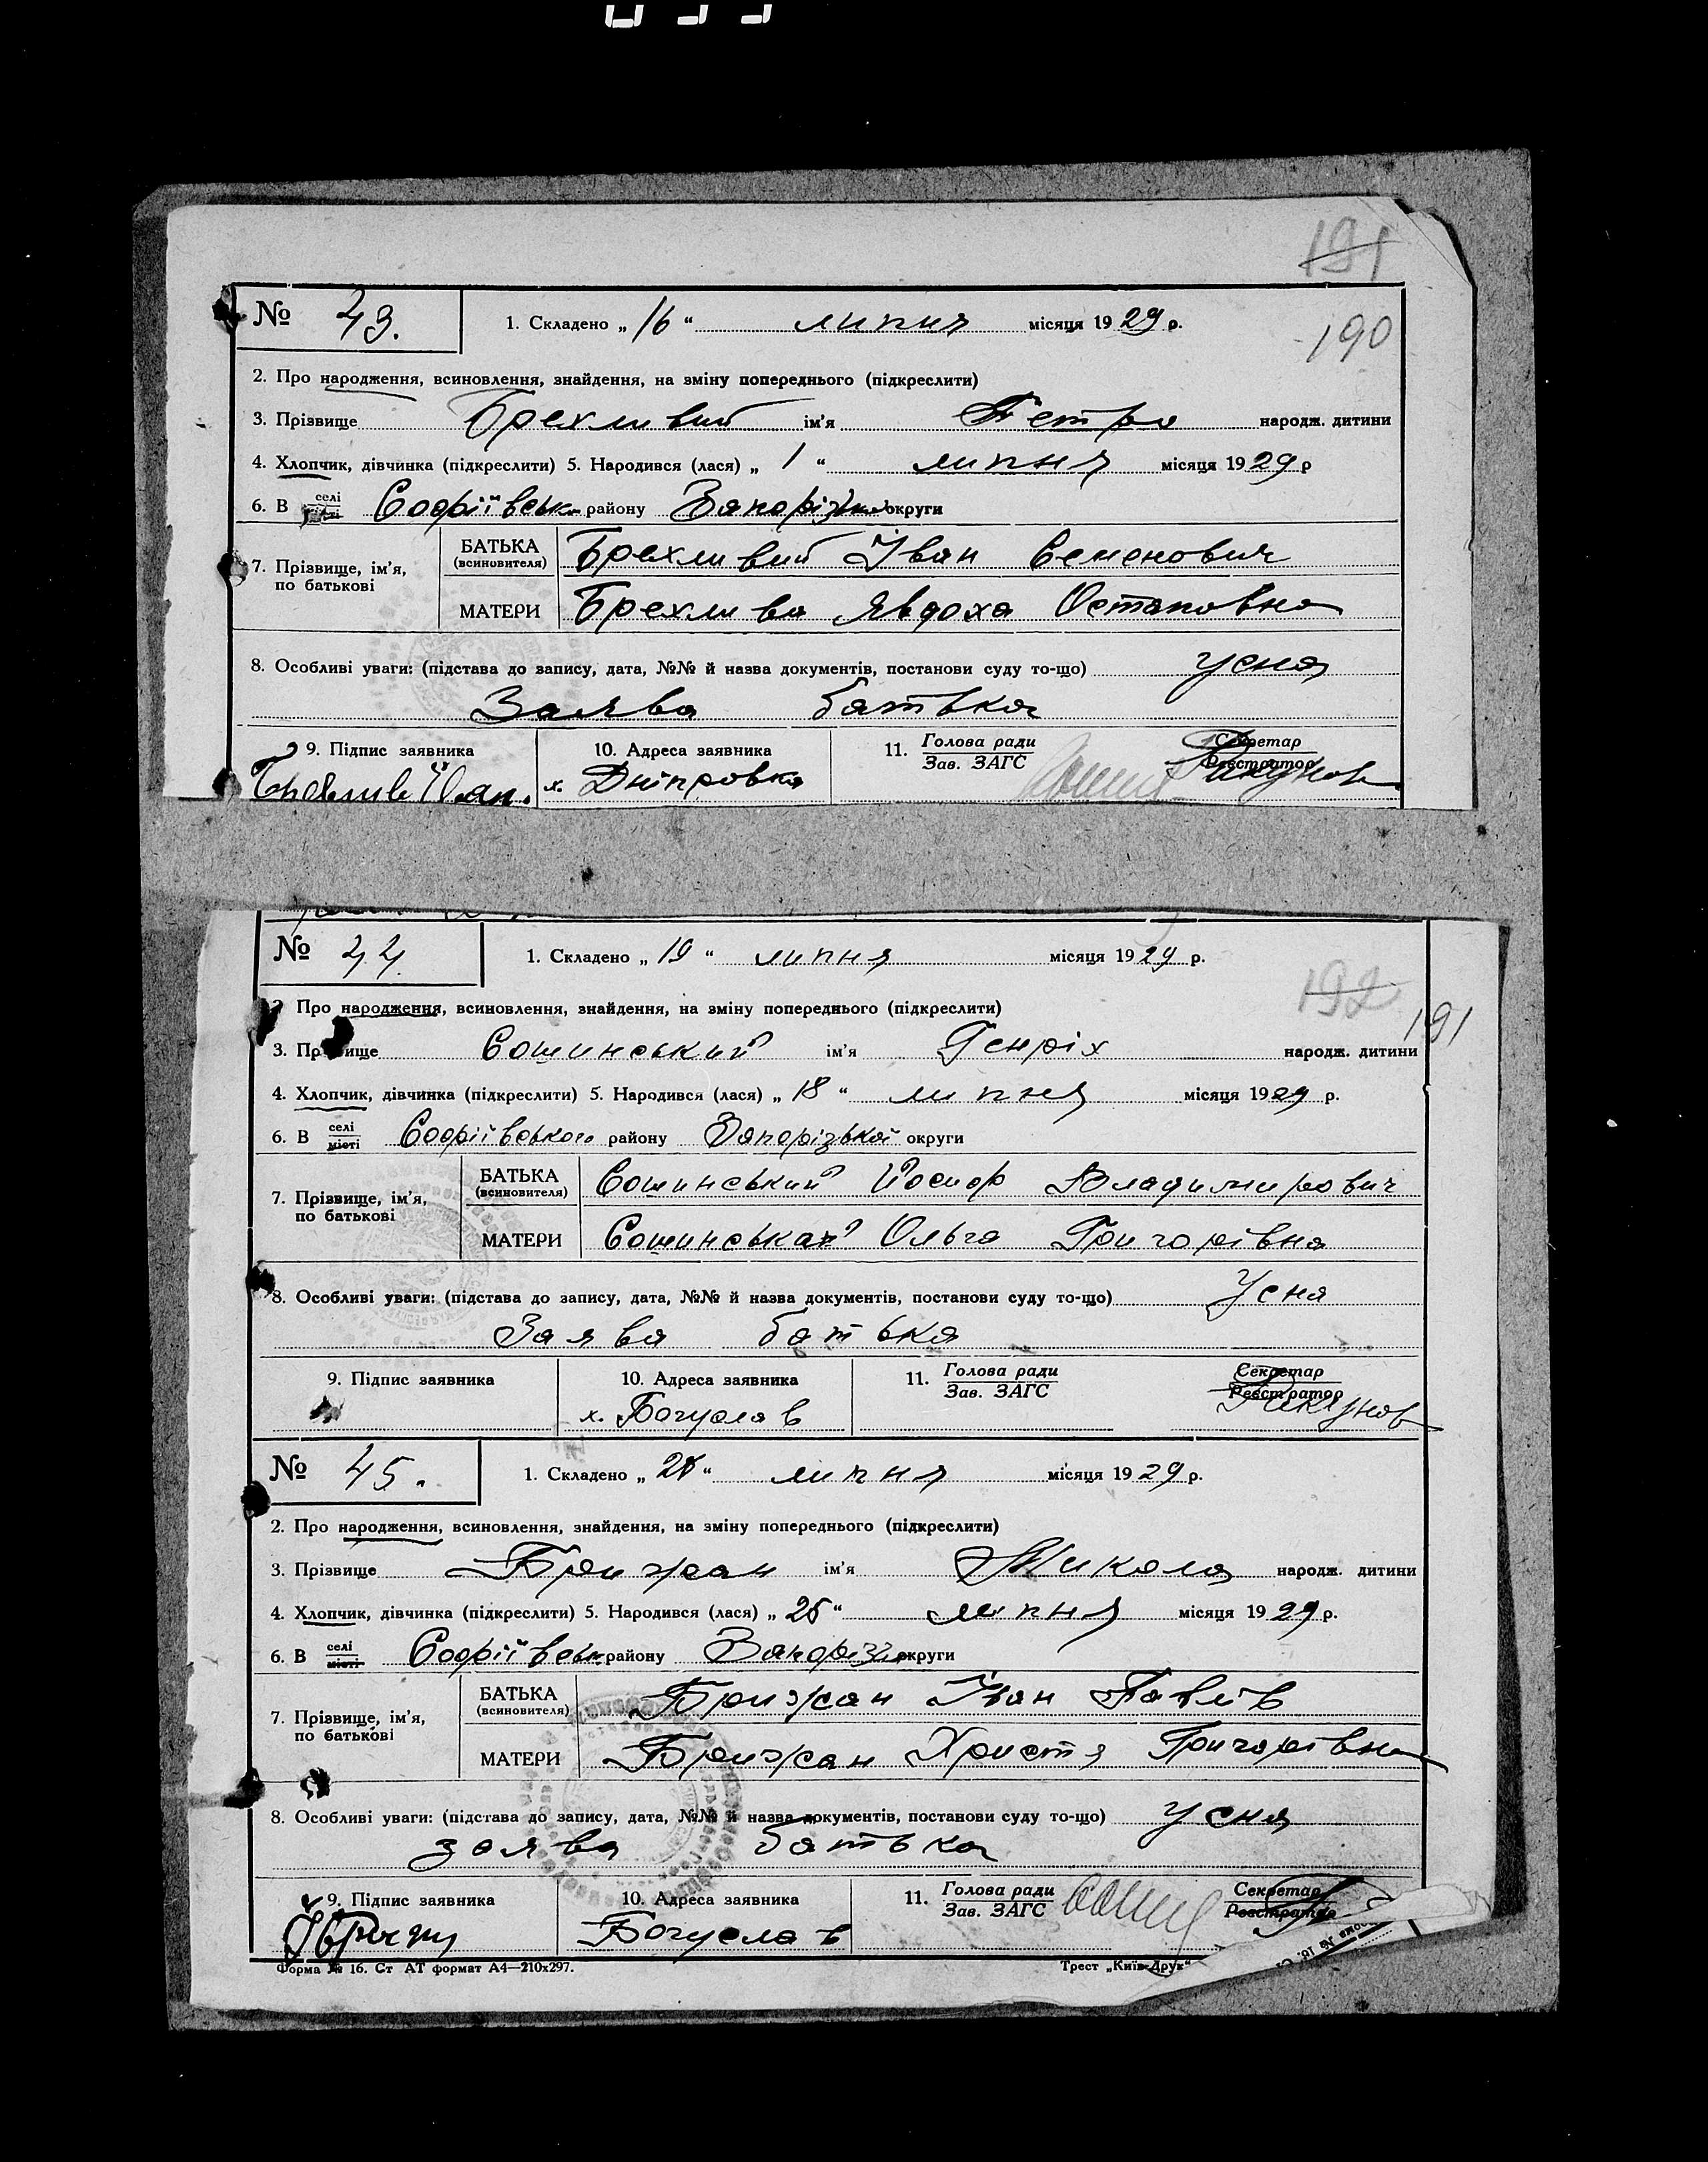 191
№ 43. 1. Складено „ 16 “ липня місяця 19 29 р.
190
2. Про народження, всиновлення, знайдення, на зміну попереднього (підкреслити)
3. Прізвище Брехливий ім'я Петро народж. дитини
4. Хлопчик, дівчинка (підкреслити) 5. Народився (лася) „ 1 “ липня місяця 19 29 р
6. В селі Софіївськ району Запорізьк округи
7. Прізвище, ім'я, по батькові
БАТЬКА (всиновителя) Брехливий Іван Семенович
МАТЕРИ Брехлива Явдоха Остаповна
8. Особливі уваги: (підстава до запису, дата, №№ й назва документів, постанови суду то-що) усна
Заява батька
9. Підпис заявника 10. Адреса заявника 11. Голова ради Секретар
Зав. ЗАГС Реєстратор
х. Дніпровка
№ 44. 1. Складено „ 19 “ липня місяця 19 29 р.
192
191
Про народження, всиновлення, знайдення, на зміну попереднього (підкреслити)
3. Пр ище Сошинський ім'я Генріх народж. дитини
4. Хлопчик, дівчинка (підкреслити) 5. Народився (лася) „ 18 “ липня місяця 19 29 р.
6. В селі місті Софіївського району Запорізької округи
7. Прізвище, ім'я, по батькові
БАТЬКА (всиновителя) Сошинський Йосиф Владимирович
МАТЕРИ Сошинська Ольга Григорівна
8. Особливі уваги: (підстава до запису, дата, №№ й назва документів, постанови суду то-що) Усна
Заява батька
9. Підпис заявника 10. Адреса заявника 11. Голова ради Секретар
Зав. ЗАГС Реєстратор
х. Богуслав
№ 45. 1. Складено „ “ липня місяця 19 29 р.
2. Про народження, всиновлення, знайдення, на зміну попереднього (підкреслити)
3. Прізвище Брижан ім'я Микола народж. дитини
4. Хлопчик, дівчинка (підкреслити) 5. Народився (лася) „ 25 “ липня місяця 19 29 р.
6. В селі місті Софіївськ району Запоріз округи
7. Прізвище, ім'я, по батькові
БАТЬКА (всиновителя) Брижан Іван Павлів
МАТЕРИ Брижан Христя Григорівна
8. Особливі уваги: (підстава до запису, дата, №№ й назва документів, постанови суду то-що) Усна
заява батька
9. Підпис заявника 10. Адреса заявника 11. Голова ради Секретар
Зав. ЗАГС Реєстратор
Богуслав
Форма № 16. Ст АТ формат А4—210х297. Трест „Київ-Друк“